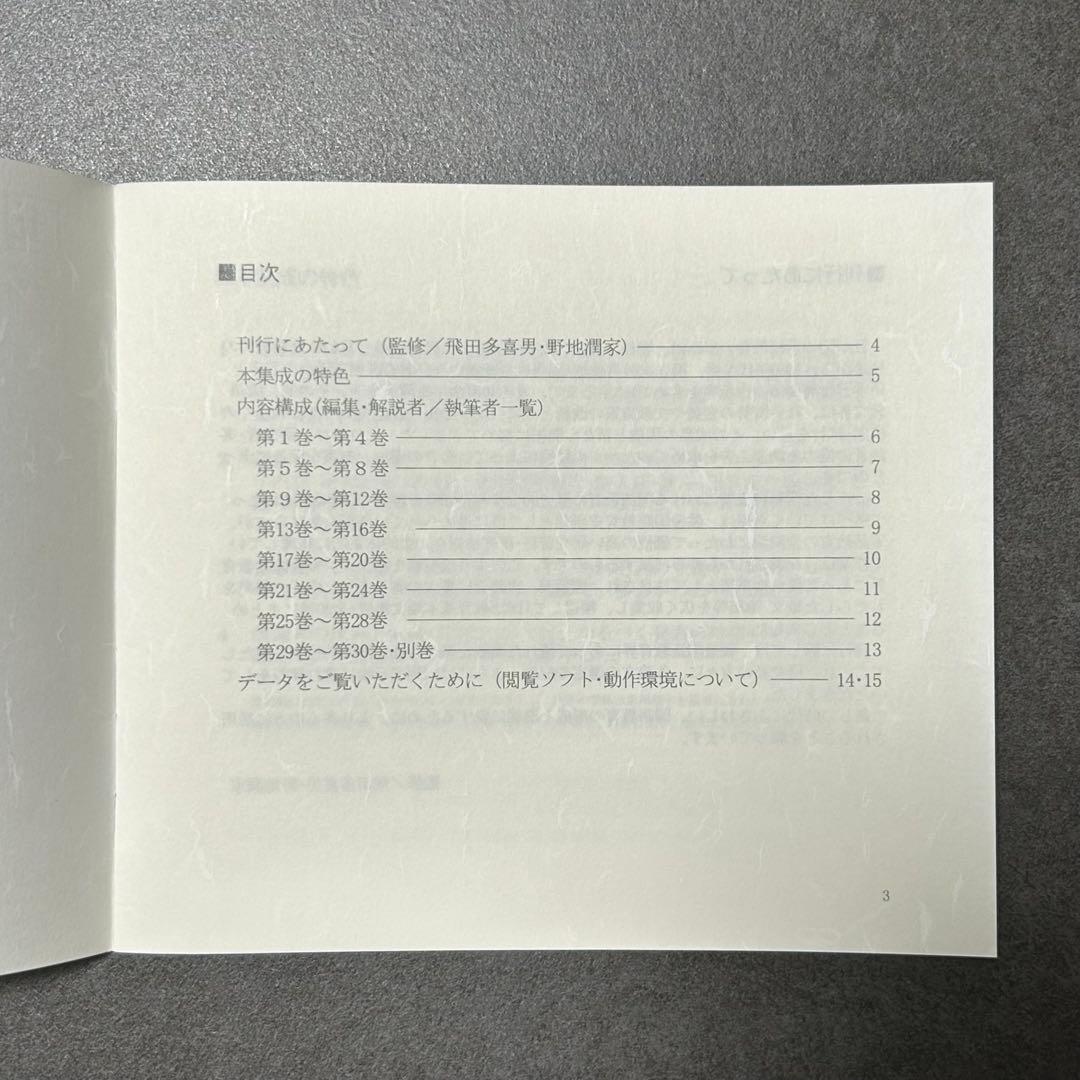 ■目次
刊行にあたって（監修／飛田多喜男・野地潤家） 4
本集成の特色 5
内容構成（編集・解説者／執筆者一覧）
第1巻～第4巻 6
第5巻～第8巻 7
第9巻～第12巻 8
第13巻～第16巻 9
第17巻～第20巻 10
第21巻～第24巻 11
第25巻～第28巻 12
第29巻～第30巻・別巻 13
データをご覧いただくために（閲覧ソフト・動作環境について） 14・15
3